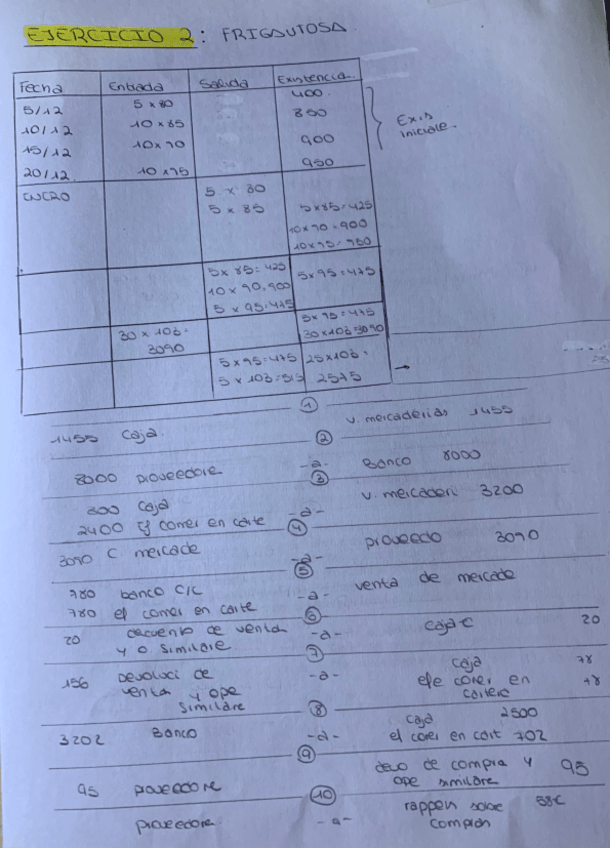 EJERCICIO 2: FRIGAUTOSA
Fecha Entrada Salida Existencia
5/12 5 x 80 400
10/12 10 x 85 850
15/12 10 x 90 900
20/12 10 x 95 950
Exis iniciale.
5 x 80
5 x 85 5 x 85 = 425
10 x 90 = 900
10 x 95 = 950
5 x 85 = 425 5 x 95 = 475
10 x 90, 900
5 x 95 = 475
30 x 103 = 5 x 95 = 475
3090 30 x 103 = 3090
5 x 95 = 475 25 x 103 =
5 x 103 = 515 2575
1
1455 Caja. v. mercaderias 1455
2
8000 proveedore -a- Banco 8000
3
800 Caja v. mercaderi 3200
2400 Ef comer en carte -a-
4
3090 C mercade -a- proveedo 3090
5
780 banco C/C -a- venta de mercade
780 ef comer en carte
6
20 descuento de venta -a- caja € 20
y o similare
7
156 Devoluci de -a- caja 78
venta y ope efe comer en 78
similare cartera
8
3202 Banco -a- caja 2500
el comer en cart 702
9
95 proveedore devo de compra y 95
ope similare
10
proveedore -a- rappen sobre
compran